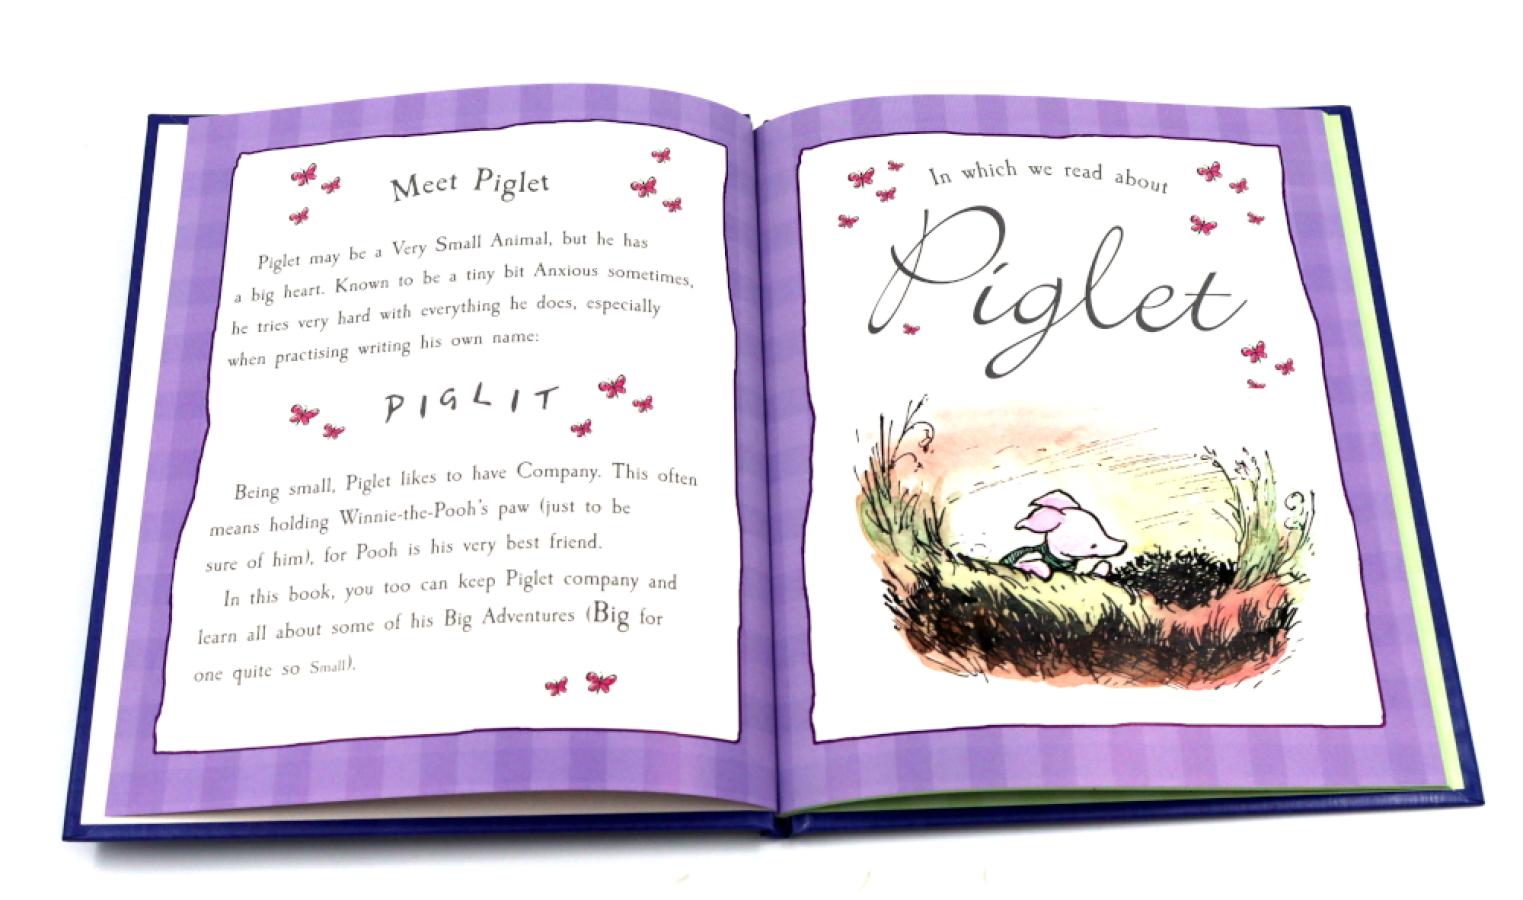 Meet Piglet
Piglet may be a Very Small Animal, but he has
a big heart. Known to be a tiny bit Anxious sometimes,
he tries very hard with everything he does, especially
when practising writing his own name:
PIGLIT
Being small, Piglet likes to have Company. This often
means holding Winnie-the-Pooh's paw (just to be
sure of him), for Pooh is his very best friend.
In this book, you too can keep Piglet company and
learn all about some of his Big Adventures (Big for
one quite so Small).
In which we read about
Piglet